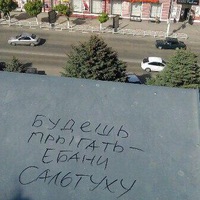 БУДЕШЬ
ПРЫГАТЬ –
ЕБАНИ
САЛЬТУХУ